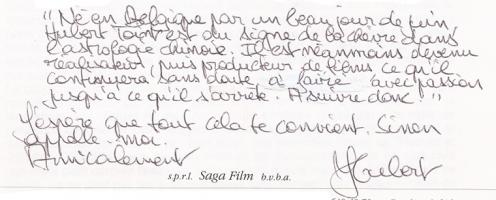 "Né en Belgique par un beau jour de juin,
Hubert Toint est du signe de la chèvre dans
l'astrologie chinoise. Il est néanmains devenu
réalisateur, puis producteur de films ce qu'il
continuera sans doute à faire avec passion
jusqu'à ce qu'il s'arrête. A suivre donc !"
J'espère que tout cela te convient. Sinon
appelle-moi.
Amicalement
s.p.r.l. Saga Film b.v.b.a.
Hubert